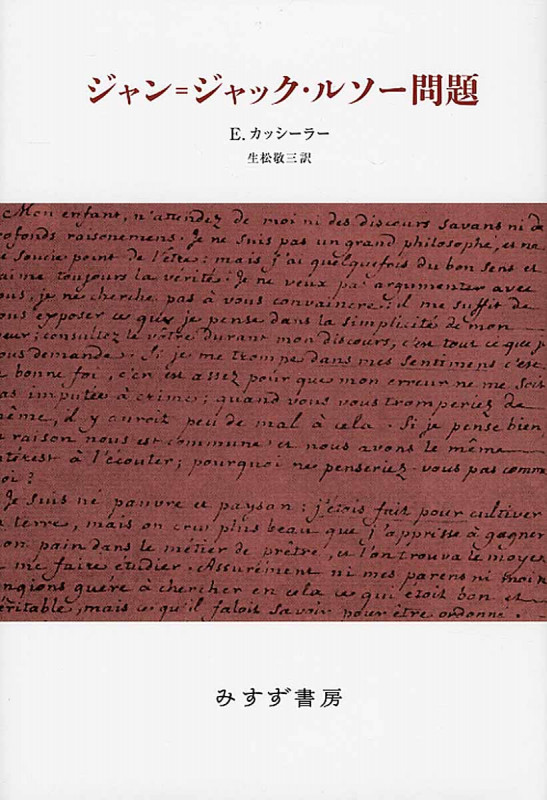 ジャン=ジャック・ルソー問題
E. カッシーラー
生松敬三訳
Mon enfant, n'attendez de moi ni des discours savans ni de
rofonds raisonemens. Je ne suis pas un grand philosophe, et ne
e soucie point de l'être: mais j'ai quelquefois du bon sens et
aime toujours la vérité. Je ne veux pas argumenter avec
ous, je ne cherche pas à vous convaincre; il me suffit de
ous exposer ce que je pense dans la simplicité de mon
eur; consultez le vôtre durant mon discours, c'est tout ce que j
ous demande. Si je me trompe dans mes sentimens c'est
e bonne foi, c'en est assez pour que mon erreur ne me soit
as imputée à crime; quand vous vous tromperiez de
ême, il y auroit peu de mal à cela. Si je pense bien,
a raison nous est commune et nous avons le même
ntérest à l'écouter; pourquoi ne penseriez-vous pas comme
oi?
Je suis né pauvre et paysan; j'étois fait pour cultiver
a terre, mais on crut plus beau que j'apprisse à gagner
on pain dans le métier de prêtre, et l'on trouva le moyen
e me faire étudier. Assurément ni mes parens ni moi n
ongions guére à chercher en cela ce qui étoit bon et
éritable, mais ce qu'il faloit savoir pour être ordonné.
みすず書房